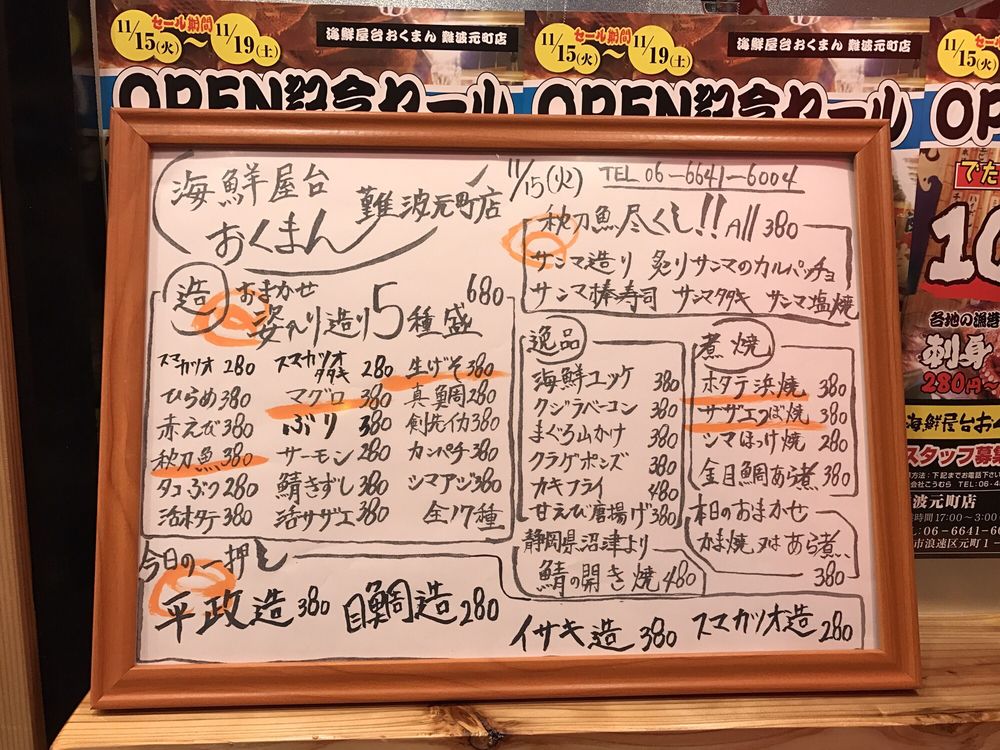 11/15(火)〜11/19(土)
セール期間
海鮮屋台おくまん 難波元町店
OPEN記念セール
11/15(火)〜11/19(土)
セール期間
海鮮屋台おくまん 難波元町店
OPEN記念セール
11/15(火)
セール
海鮮屋台
おくまん
難波元町店
11/15(火) TEL 06-6641-6004
秋刀魚尽くし!! All 380
サンマ造り 炙りサンマのカルパッチョ
サンマ棒寿司 サンマタタキ サンマ塩焼
造 おまかせ 680
姿入り造り5種盛
スマカツオ 280 スマカツオタタキ 280 生げそ 380
ひらめ 380 マグロ 380 真鯛 280
赤えび 380 ぶり 380 剣先イカ 380
秋刀魚 380 サーモン 280 カンパチ 380
タコぶつ 280 鯖きずし 380 シマアジ 380
活ホタテ 380 活サザエ 380 全17種
逸品
海鮮ユッケ 380
クジラベーコン 380
まぐろ山かけ 380
クラゲポンズ 380
カキフライ 480
甘えび唐揚げ 380
静岡県沼津より
鯖の開き焼 480
煮焼
ホタテ浜焼 380
サザエつぼ焼 380
シマほっけ焼 280
金目鯛あら煮 380
本日のおまかせ
かま焼又はあら煮
380
今日の一押し
平政造 380 目鯛造 280 イサキ造 380 スマカツオ造 280
各地の漁港
刺身
280円〜
海鮮屋台お
スタッフ募集
波元町店
時間17:00〜3:00
市浪速区元町1